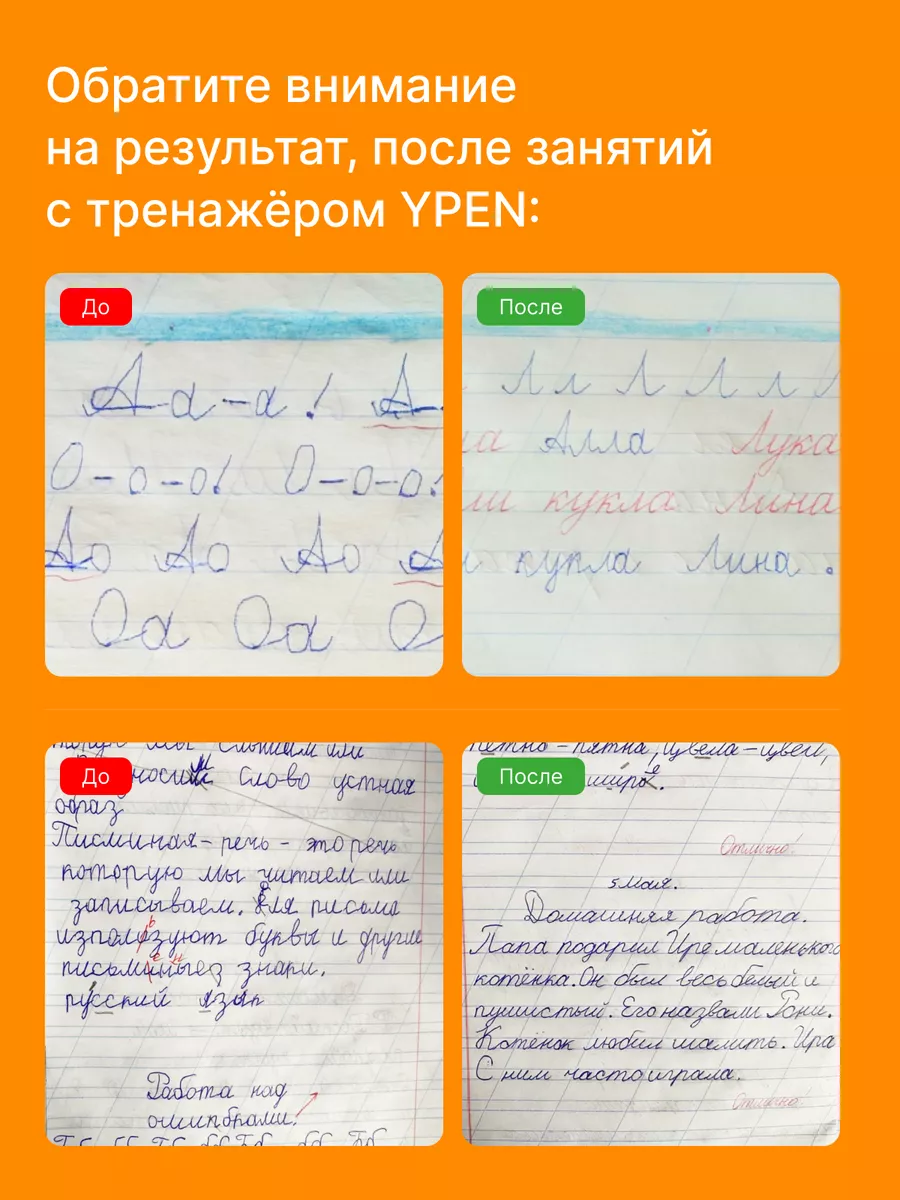 Обратите внимание
на результат, после занятий
с тренажёром YPEN:
До
А-а-а! А-
О-о-о! О-о-о!
Ао Ао Ао А
Оа Оа О
После
Л л Л Л л Л
Алла Лука
кукла Лина
купла Лина.
До
мы слышим или
слово устная
образ
Писминая - речь - это речь
которую мы читаем или
записываем. Для писома
използуют буквы и другие
знаки.
русский язык
Работа над
ошибками.
После
- пятна, цвела - цвел,
Отлично!
5 мая.
Домашняя работа.
Папа подарил Ире маленького
котёнка. Он был весь белый и
пушистый. Его назвали Рони.
Котёнок любил шалить. Ира
С ним часто играла.
Отлично